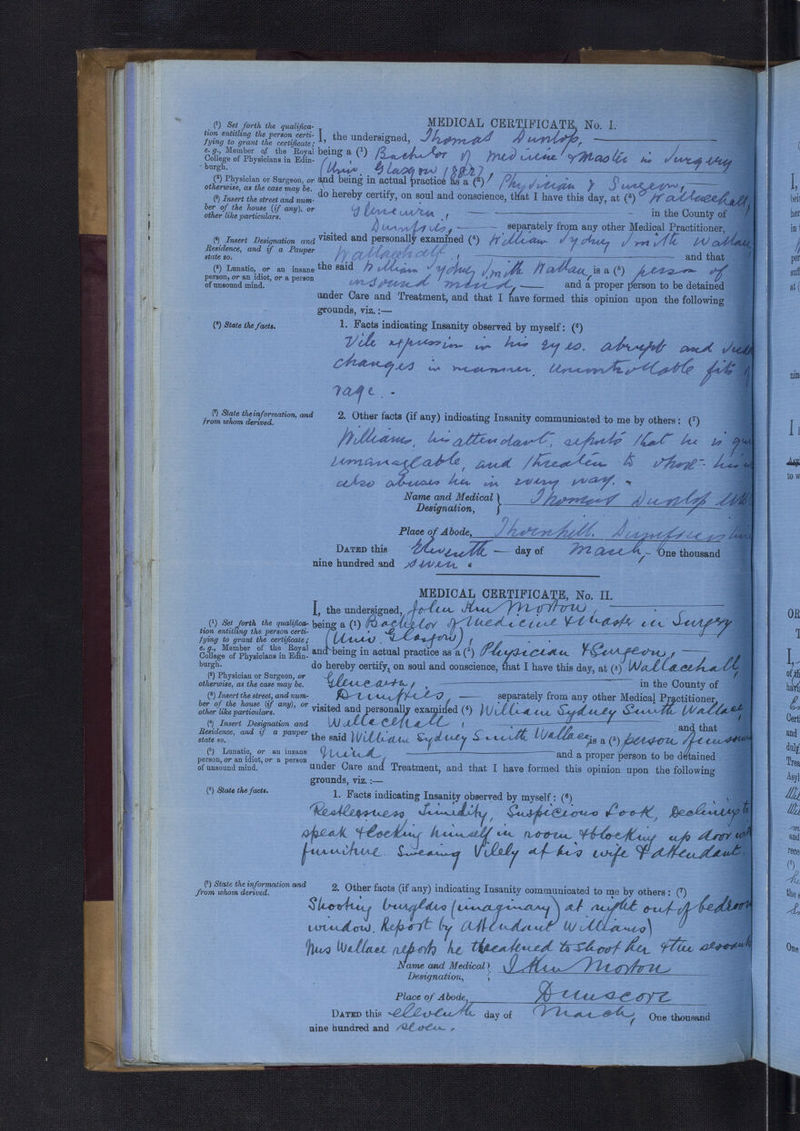 MEDICAL CERTIFICATE, No. I.
(¹) Set forth the qualifica-
tion entitling the person certi-
fying to grant the certificate;
e.g., Member of the Royal
College of Physicians in Edin-
burgh.
(²) Physician or Surgeon, or
otherwise, as the case may be.
(³) Insert the street and num-
ber of the house (if any), or
other like particulars.
(⁴) Insert Designation and
Residence, and if a Pauper
state so.
(⁵) Lunatic, or an insane
person, or an idiot, or a person
of unsound mind.
I, the undersigned, Thomas Dunlop,
being a (¹) Bachelor of Medicine & Master in Surgery
(Univ. Glasgow 1882)
and being in actual practice as a (²) Physician & Surgeon,
do hereby certify, on soul and conscience, that I have this day, at (³) Wallacehall,
Glencairn, in the County of
Dumfries, separately from any other Medical Practitioner,
visited and personally examined (⁴) William Sydney Smith Wallace
Wallacehall, and that
the said William Sydney Smith Wallace is a (⁵) person of
unsound mind, and a proper person to be detained
under Care and Treatment, and that I have formed this opinion upon the following
grounds, viz.:—
(⁶) State the facts.
1. Facts indicating Insanity observed by myself: (⁶)
Vile expression in his eyes. abrupt and
changes in manner. Uncontrollable fits
rage.
(⁷) State the information, and
from whom derived.
2. Other facts (if any) indicating Insanity communicated to me by others: (⁷)
Williams, his attendant, reports that he is
unmanageable, and threaten to shoot his
also abuses her in every way.
Name and Medical Designation, Thomas Dunlop MB
Place of Abode, Thornhill. Dumfriesshire
DATED this Eleventh day of March, One thousand
nine hundred and seven
MEDICAL CERTIFICATE, No. II.
(¹) Set forth the qualifica-
tion entitling the person certi-
fying to grant the certificate;
e.g., Member of the Royal
College of Physicians in Edin-
burgh.
(²) Physician or Surgeon, or
otherwise, as the case may be.
(³) Insert the street, and num-
ber of the house (if any), or
other like particulars.
(⁴) Insert Designation and
Residence, and if a pauper
state so.
(⁵) Lunatic, or an insane
person, or an idiot, or a person
of unsound mind.
I, the undersigned, John Morton,
being a (¹) Bachelor of Medicine & Master in Surgery
(Univ. Glasgow),
and being in actual practice as a (²) Physician & Surgeon,
do hereby certify, on soul and conscience, that I have this day, at (³) Wallacehall
Glencairn, in the County of
Dumfries, separately from any other Medical Practitioner,
visited and personally examined (⁴) William Sydney Smith Wallace
Wallacehall, and that
the said William Sydney Smith Wallace is a (⁵) person of unsound
mind and a proper person to be detained
under Care and Treatment, and that I have formed this opinion upon the following
grounds, viz.:—
(⁶) State the facts.
1. Facts indicating Insanity observed by myself: (⁶)
Restlessness Timidity, Suspicious look, Declining to
speak & locking himself in room & blocking up door with
furniture. Swearing Vilely at his wife & attendant.
(⁷) State the information and
from whom derived.
2. Other facts (if any) indicating Insanity communicated to me by others: (⁷)
Shooting burglars (imaginary) at night out of bedroom
window. Report by attendant Williams)
Mrs Wallace reports he threatened to shoot her & the servants
Name and Medical Designation, J Morton
Place of Abode, Dunscore
DATED this eleventh day of March, One thousand
nine hundred and seven.